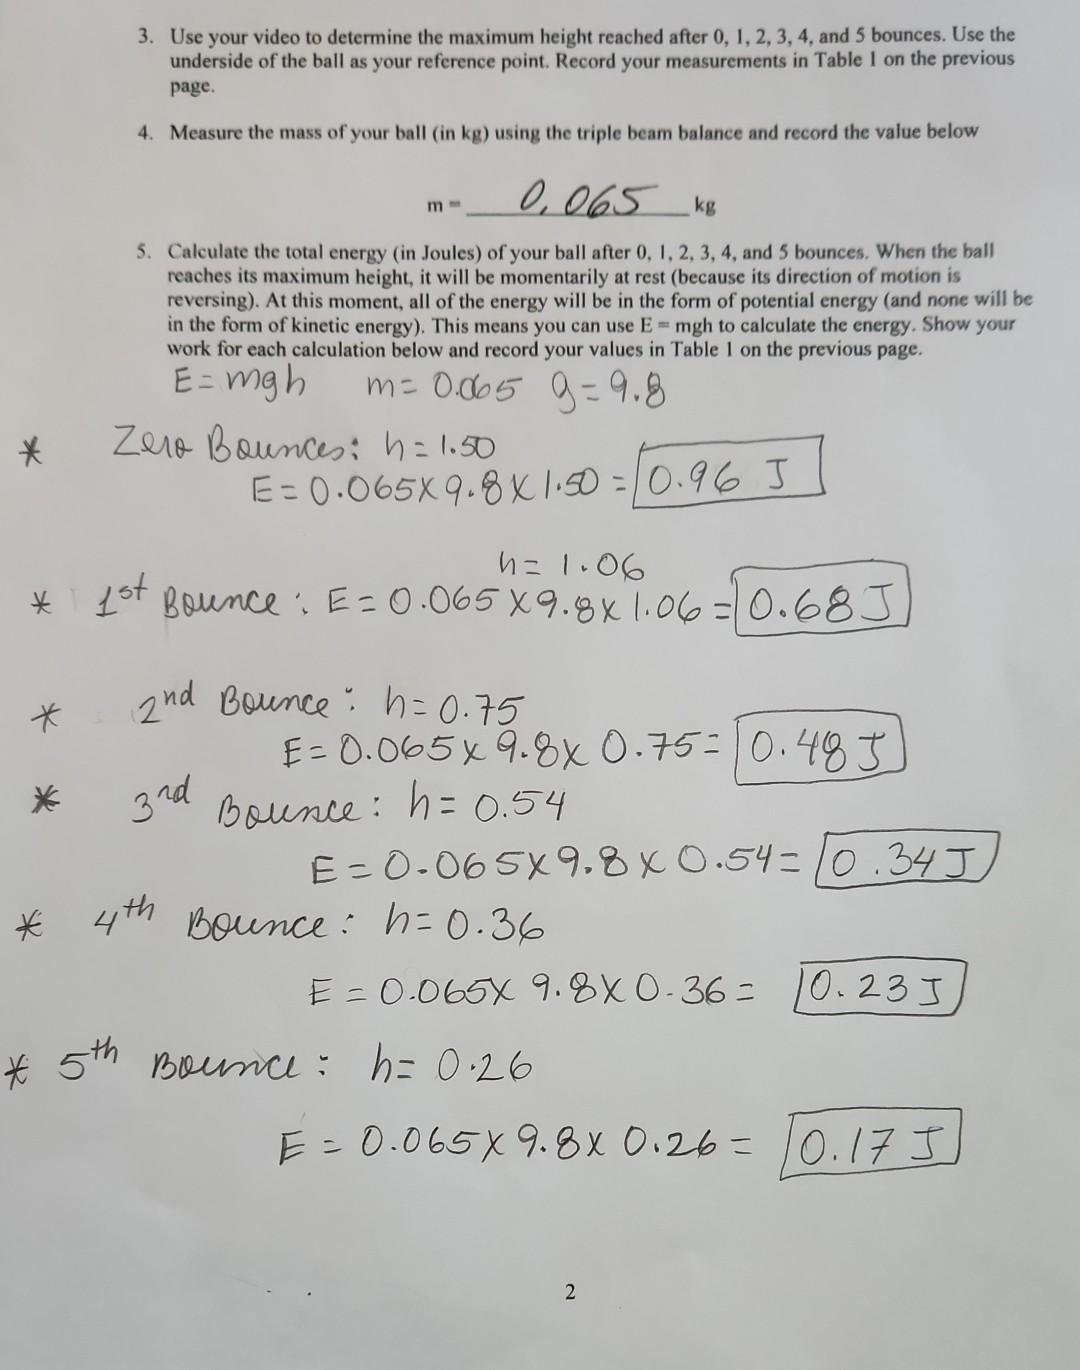 3. Use your video to determine the maximum height reached after 0, 1, 2, 3, 4, and 5 bounces. Use the
underside of the ball as your reference point. Record your measurements in Table 1 on the previous
page.
4. Measure the mass of your ball (in kg) using the triple beam balance and record the value below
m = 0.065 kg
5. Calculate the total energy (in Joules) of your ball after 0, 1, 2, 3, 4, and 5 bounces. When the ball
reaches its maximum height, it will be momentarily at rest (because its direction of motion is
reversing). At this moment, all of the energy will be in the form of potential energy (and none will be
in the form of kinetic energy). This means you can use E = mgh to calculate the energy. Show your
work for each calculation below and record your values in Table 1 on the previous page.
E = mgh m = 0.065 g = 9.8
* Zero Bounces: h = 1.50
E = 0.065 x 9.8 x 1.50 = 0.96 J
h = 1.06
* 1st Bounce: E = 0.065 x 9.8 x 1.06 = 0.68 J
* 2nd Bounce: h = 0.75
E = 0.065 x 9.8 x 0.75 = 0.48 J
* 3rd Bounce: h = 0.54
E = 0.065 x 9.8 x 0.54 = 0.34 J
* 4th Bounce: h = 0.36
E = 0.065 x 9.8 x 0.36 = 0.23 J
* 5th Bounce: h = 0.26
E = 0.065 x 9.8 x 0.26 = 0.17 J
2